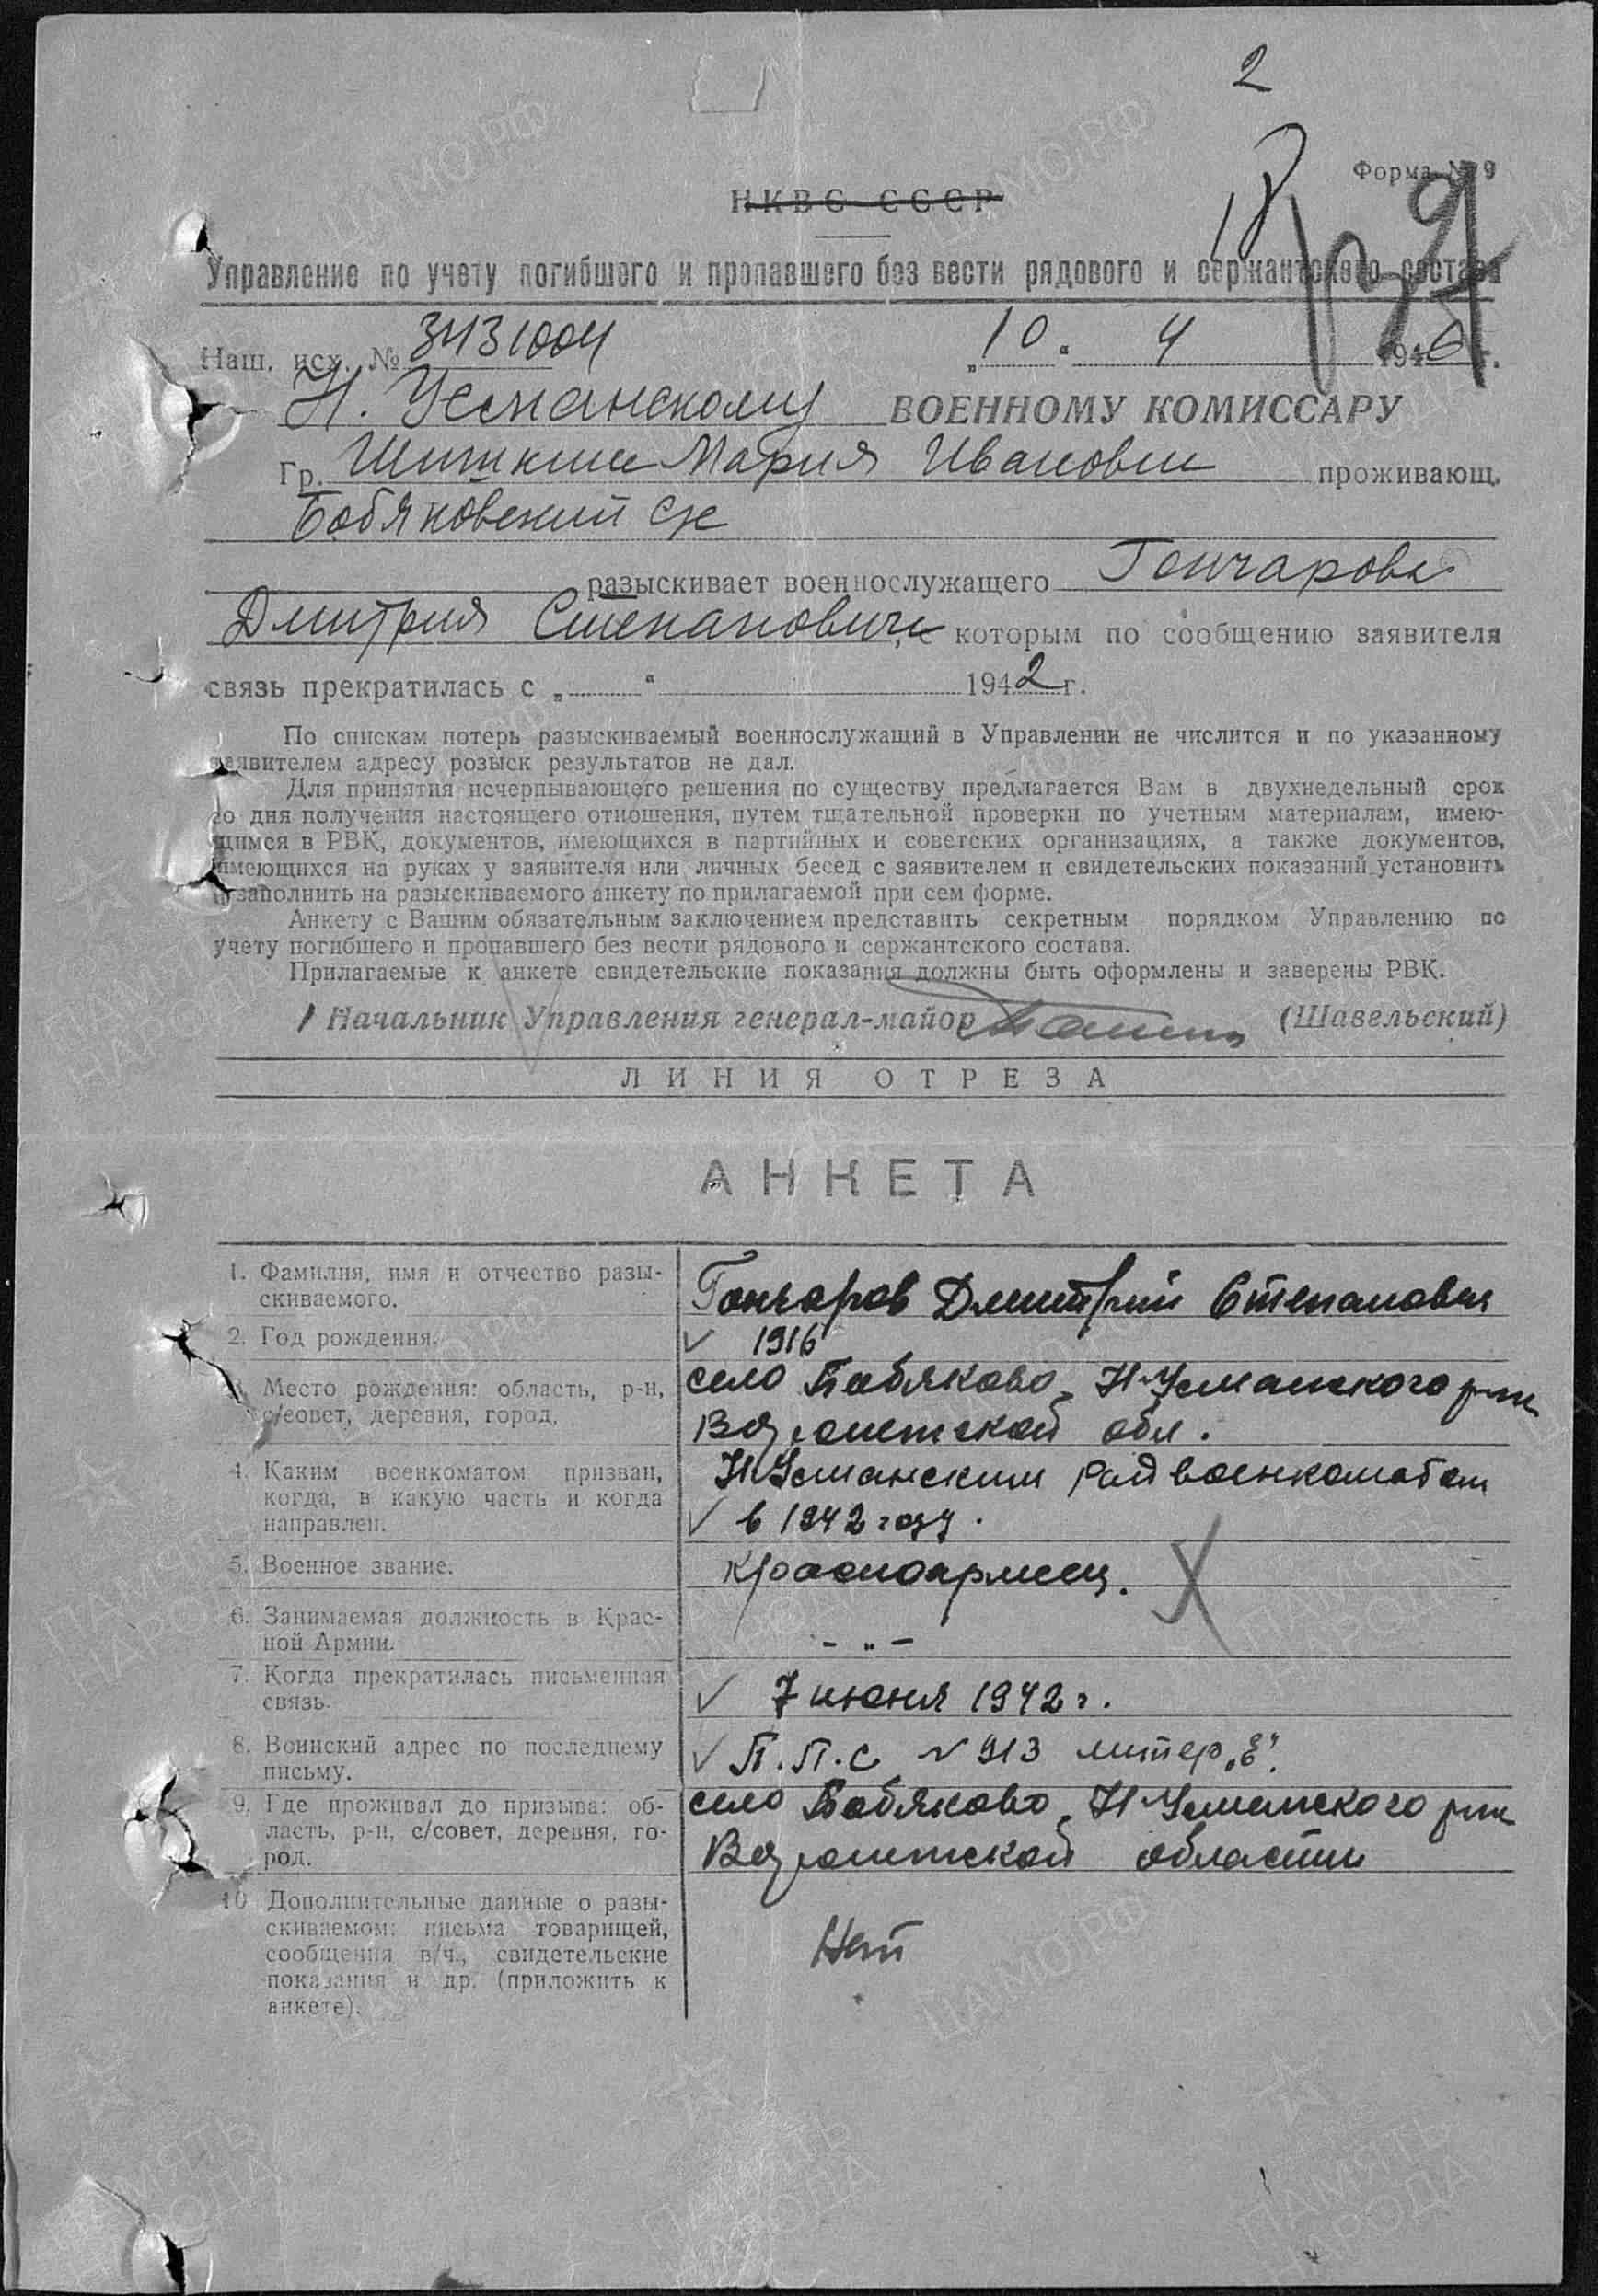 2
Форма № 9
НКВС СССР
Управление по учету погибшего и пропавшего без вести рядового и сержантского состава
Наш. исх. № 3431004 „10“ 4 1946 г.
Н. Усманскому ВОЕННОМУ КОМИССАРУ
Гр. Мария Ивановн проживающ.
Бобяковский с/с
разыскивает военнослужащего Гончарова
Дмитрия Степановича, с которым по сообщению заявителя
связь прекратилась с „ “ 1942 г.
По спискам потерь разыскиваемый военнослужащий в Управлении не числится и по указанному
заявителем адресу розыск результатов не дал.
Для принятия исчерпывающего решения по существу предлагается Вам в двухнедельный срок
со дня получения настоящего отношения, путем тщательной проверки по учетным материалам, имею-
щимся в РВК, документов, имеющихся в партийных и советских организациях, а также документов,
имеющихся на руках у заявителя или личных бесед с заявителем и свидетельских показаний установить
и заполнить на разыскиваемого анкету по прилагаемой при сем форме.
Анкету с Вашим обязательным заключением представить секретным порядком Управлению по
учету погибшего и пропавшего без вести рядового и сержантского состава.
Прилагаемые к анкете свидетельские показания должны быть оформлены и заверены РВК.
Начальник Управления генерал-майор (Шавельский)
ЛИНИЯ ОТРЕЗА
АНКЕТА
1. Фамилия, имя и отчество разы-
скиваемого.
Гончаров Дмитрий Степанович
2. Год рождения.
1916
3. Место рождения: область, р-н,
с/совет, деревня, город.
село Бобяково, Н-Усманского р-на
Воронежской обл.
4. Каким военкоматом призван,
когда, в какую часть и когда
направлен.
Н-Усманским райвоенкоматом
в 1942 году.
5. Военное звание.
красноармеец.
6. Занимаемая должность в Крас-
ной Армии.
- „ -
7. Когда прекратилась письменная
связь.
7 июня 1942 г.
8. Воинский адрес по последнему
письму.
П.П.С. № 913 литер „Е“.
9. Где проживал до призыва: об-
ласть, р-н, с/совет, деревня, го-
род.
село Бобяково, Н-Усманского р-на
Воронежской области
10 Дополнительные данные о разы-
скиваемом: письма товарищей,
сообщения в/ч., свидетельские
показания и др. (приложить к
анкете).
Нет